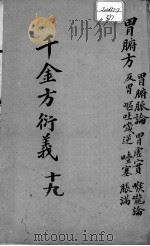 胃腑方
胃腑脉論 胃虛實 喉嚨論
反胃 嘔吐噦逆 噎塞 脹滿
千金方衍義 十九